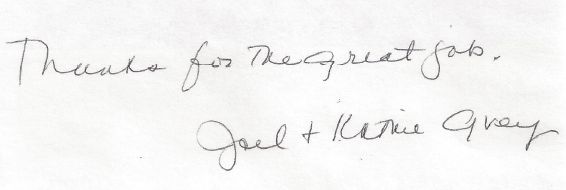 Thanks for the great job.
Joel + Katie Avey